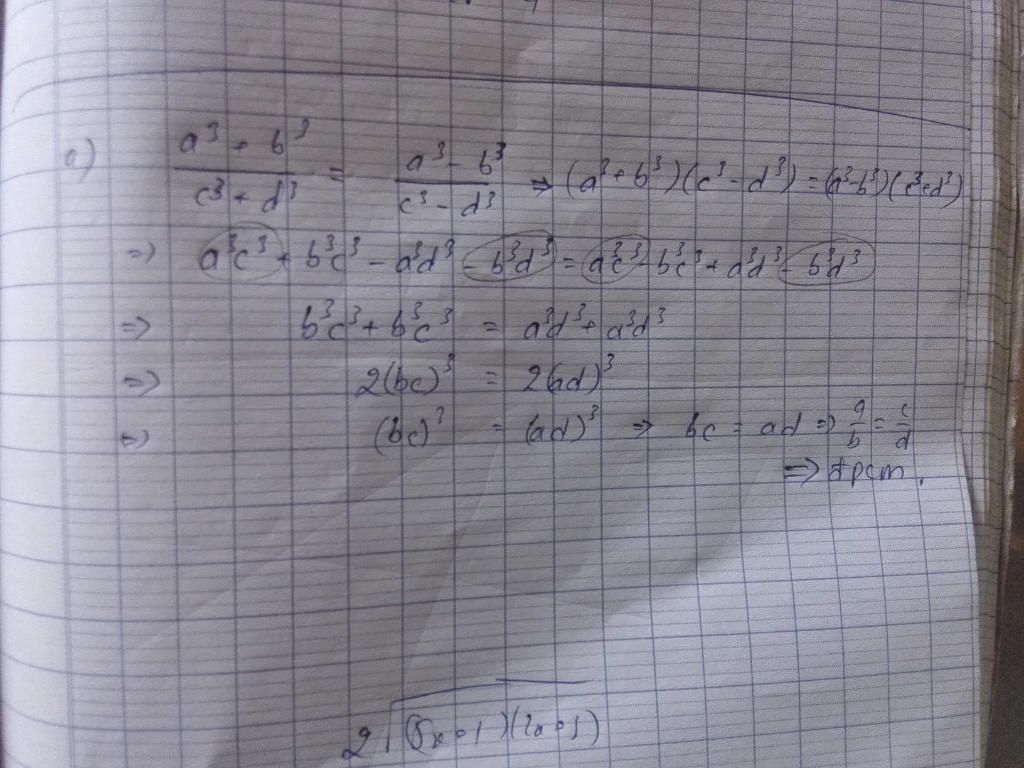 a) \frac{a³ + b³}{c³ + d³} = \frac{a³ - b³}{c³ - d³} ⇒ (a³ + b³)(c³ - d³) = (a³-b³)(c³+d³)
=) a³c³ + b³c³ - a³d³ - b³d³ = a³c³ - b³c³ + a³d³ - b³d³
=> b³c³ + b³c³ = a³d³ + a³d³
=> 2(bc)³ = 2(ad)³
=> (bc)³ = (ad)³ => bc = ad => \frac{a}{b} = \frac{c}{d}
=> đpcm.
2√(5x+1)(2x+1)